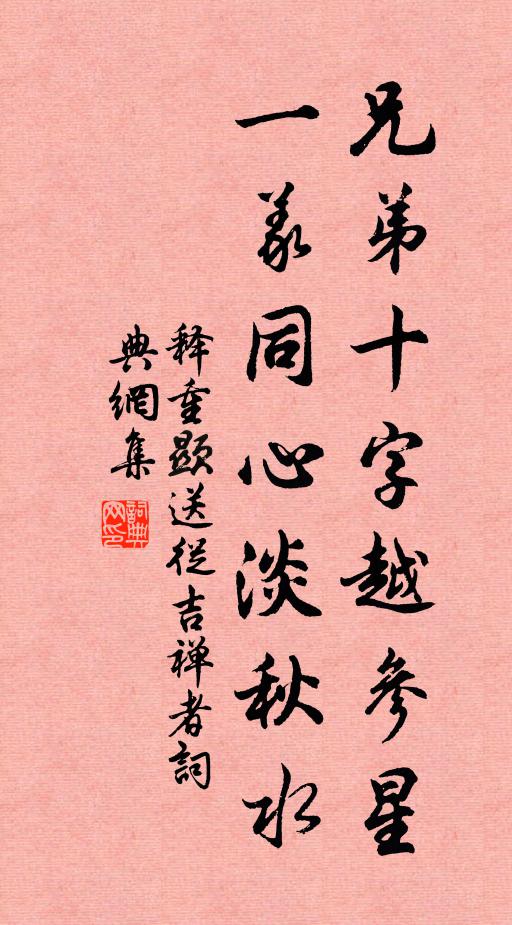 兄弟十字越參星
一義同心淡秋水
释重顯送從吉禅者詞
典網集
詞典网印